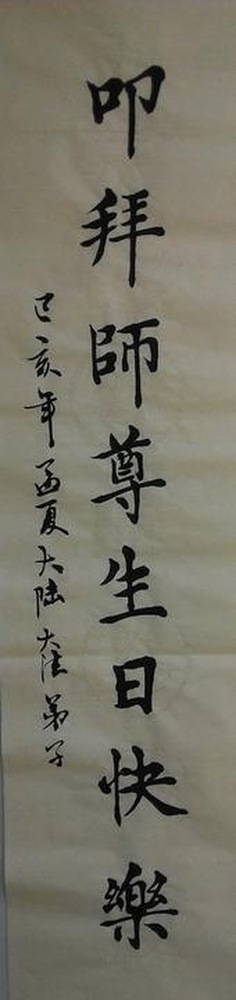 叩拜師尊生日快樂
己亥年孟夏大陆大法弟子